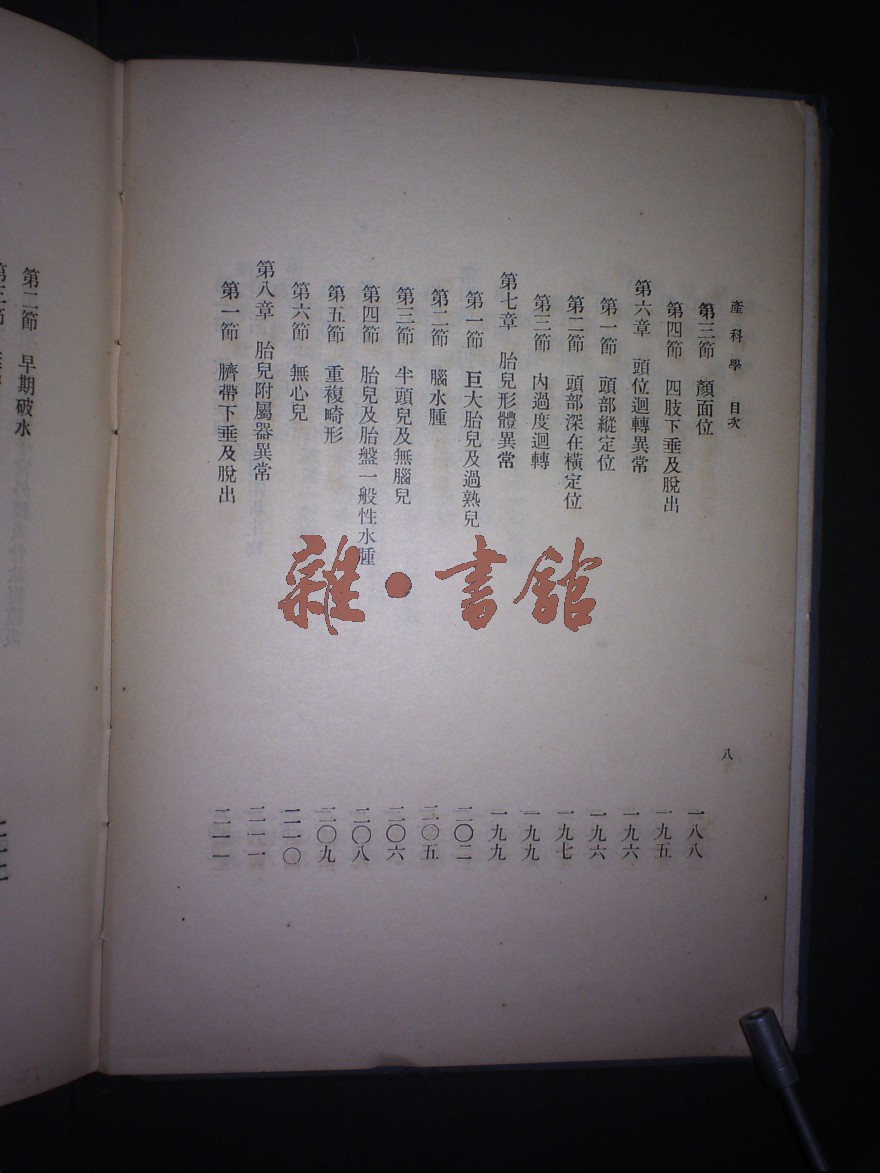 產科學 目次
八
第三節 顏面位 一八八
第四節 四肢下垂及脫出 一九五
第六章 頭位迴轉異常 一九六
第一節 頭部縱定位 一九六
第二節 頭部深在橫定位 一九七
第三節 內過度迴轉 一九九
第七章 胎兒形體異常 一九九
第一節 巨大胎兒及過熟兒 二〇二
第二節 腦水腫 二〇五
第三節 半頭兒及無腦兒 二〇六
第四節 胎兒及胎盤一般性水腫 二〇八
第五節 重複畸形 二〇九
第六節 無心兒 二一〇
第八章 胎兒附屬器異常 二一一
第一節 臍帶下垂及脫出 二一一
第二節 早期破水 二一二
第三節
雜·書館